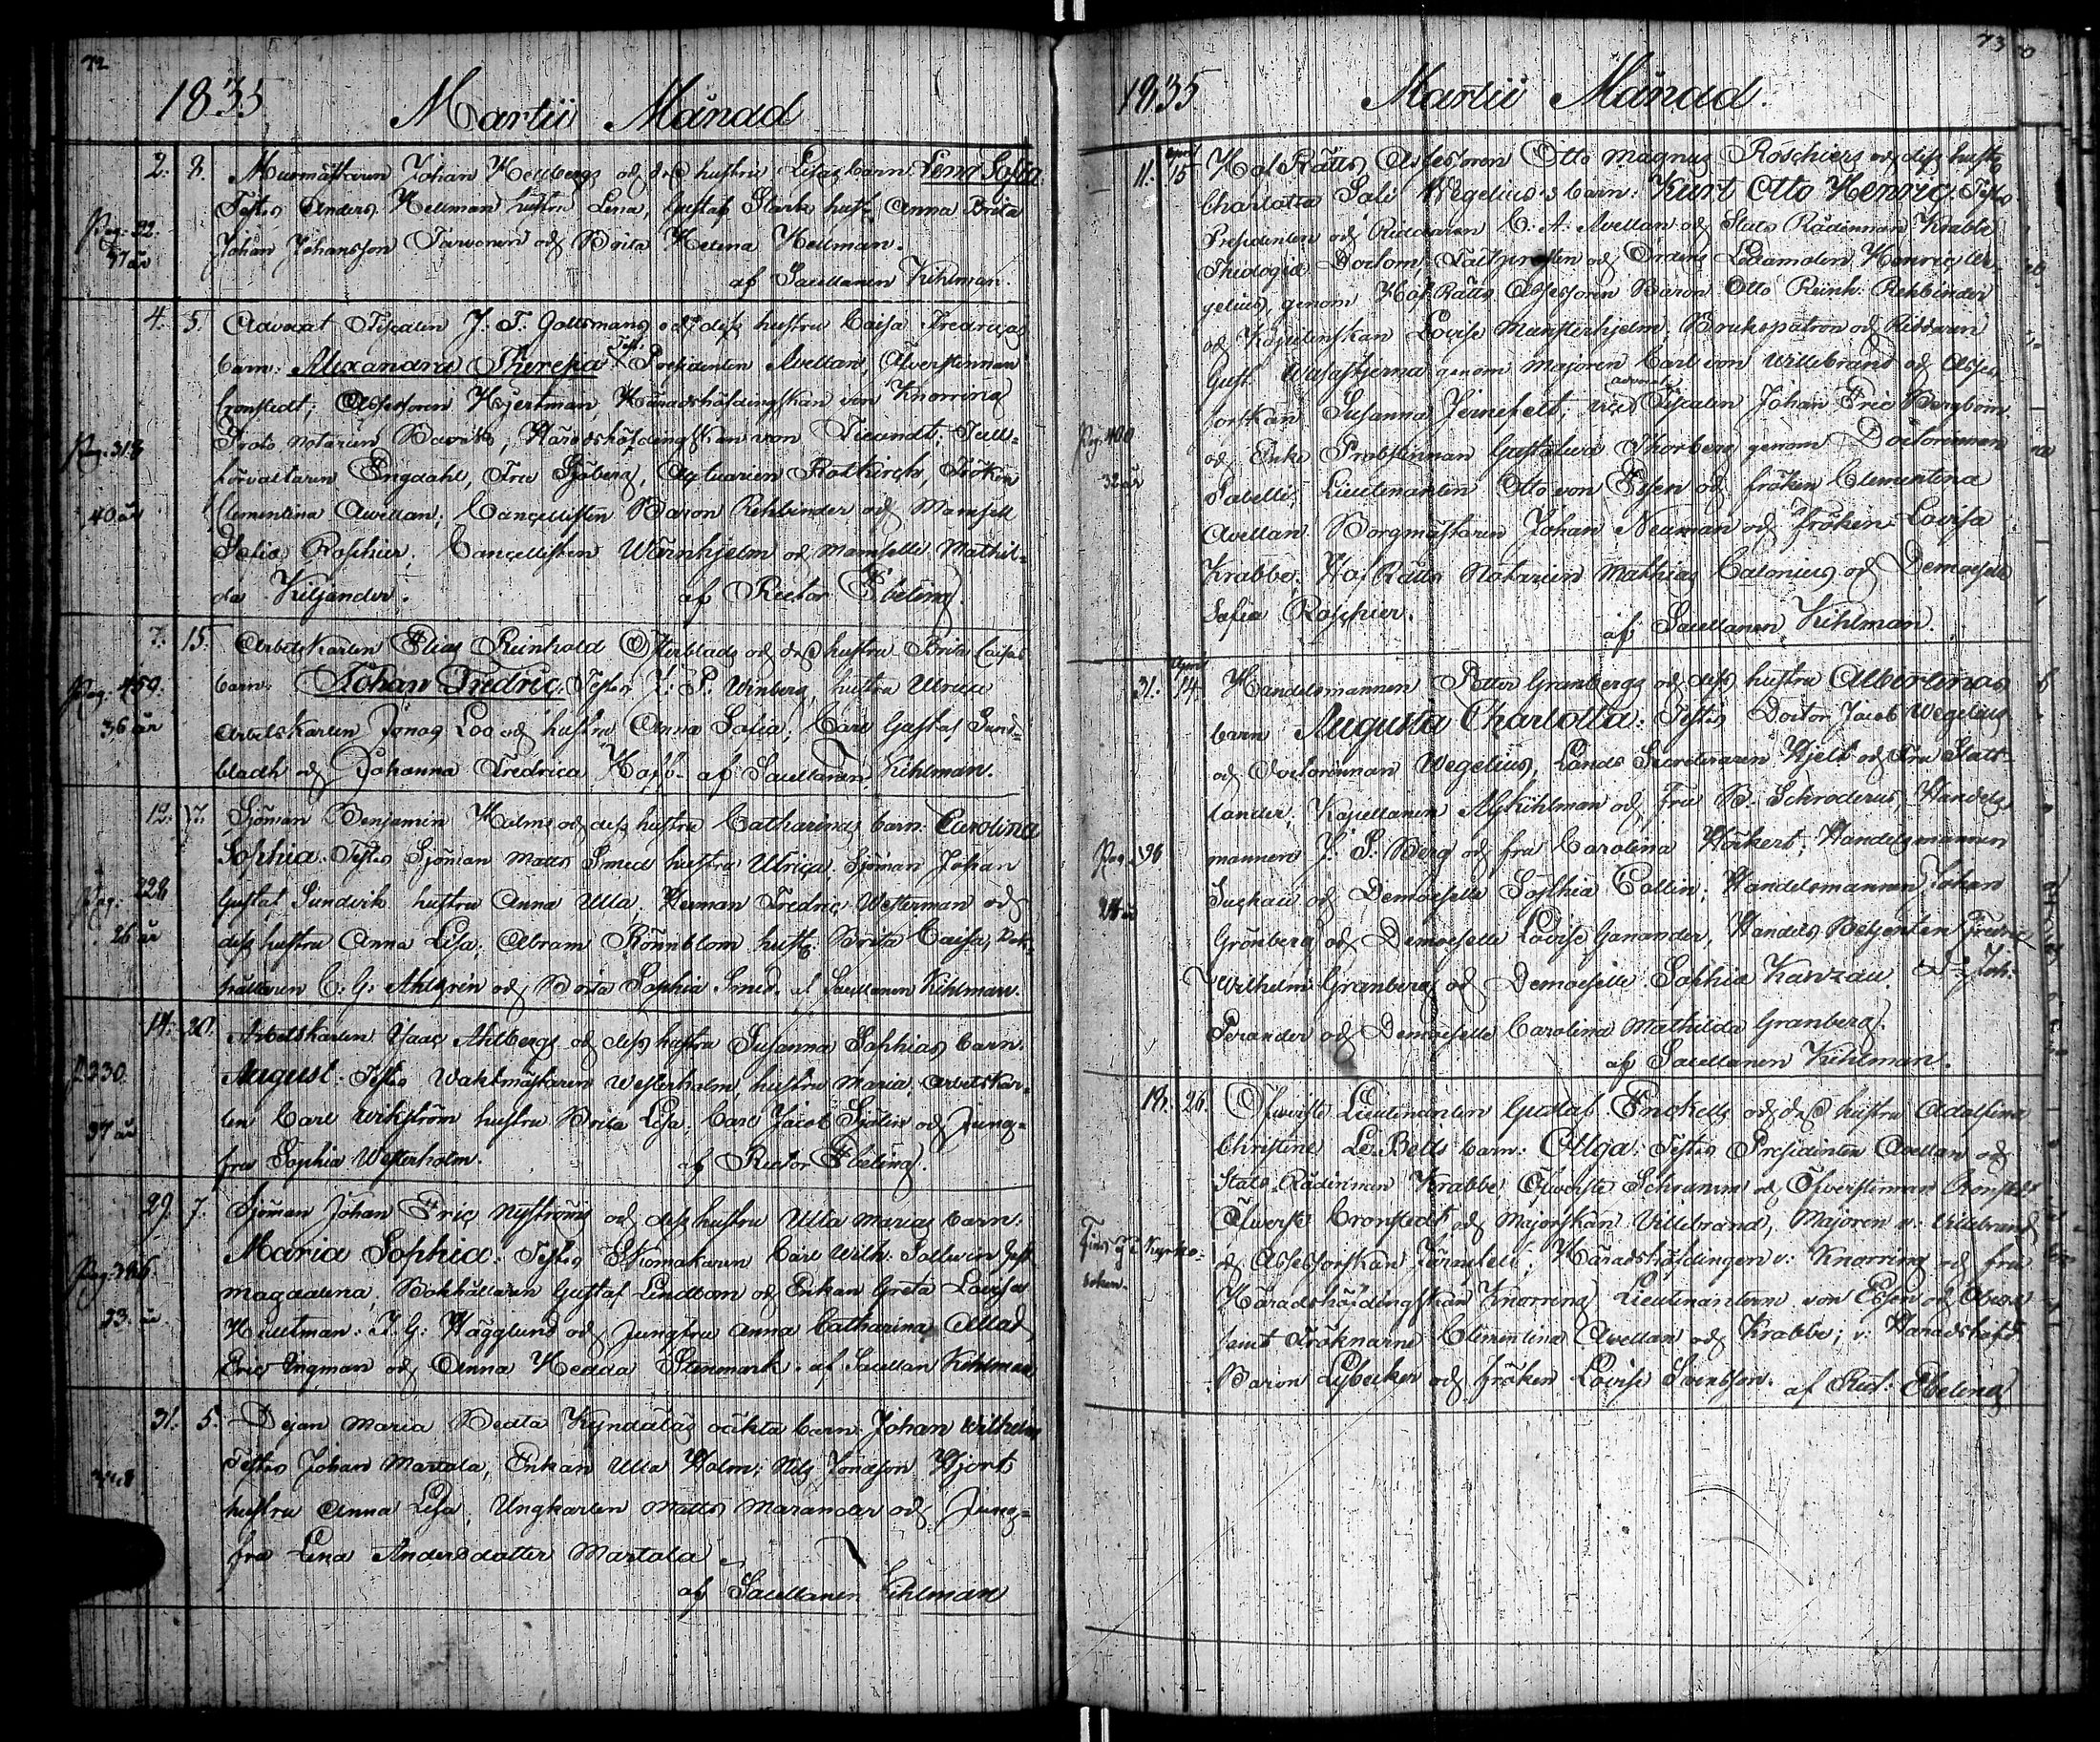 72
1835 Martii Månad
2. 8. Murmästaren Johan Hellbergs och dess hustru Lisas barn: Lena Sofia.
Testes Anders Hellman hustru Lena, Gustaf Starke hust. Anna Brita
Pag. 22. Johan Johansson Tarvonen och Brita Helena Hellman.
37 år af Sacellanen Kihlman.
4. 5. Advocat Fiscalen J. F. Goltsmans och dess hustru Caisa Fredricas
barn: Alexandra Theresa Test: Presidenten Avellan, Öfverstinnan
Cronstedt; Assessoren Hjertman Häradshöfdingskan von Knorring
Pag. 318 Proto Notarien, Häradshöfdingskan von; Tull-
förvaltaren Engdahl, Fru Sjöberg, Actuarien Rotkirch, Fröken
40 år Clementina Avellan; Cancellisten Baron Rehbinder och Mamsell
Sofia Roschier, Cancellisten Wärnhjelm och Mamselle Mathil-
da Kiljander. af Rector Ebeling
7. 15. Arbetskarlen Elias Reinhold Österblads och dess hustru Brita Caisas
Pag. 459. barn: Johan Fredric, Testes Z: P: Winberg, hustru Ulrica
36 år Arbetskarlen Jonas Loo och hustru Anna Sofia; Carl Gustaf Sund-
bladh och Johanna Fredrica Hoff. af Sacellanen Kihlman.
12. 17. Sjöman Benjamin Holms och dess hustru Catharinas barn: Carolina
Sophia. Testes Sjöman Matts Smed hustru Ulrica. Sjöman Johan
Pag. 228 Gustaf Sundvik hustru Anna Ulla. Herman Fredric Westerman och
26 år dess hustru Anna Lisa; Abram Rönnblom hust: Brita Caisa, Bok-
hållaren C. G. Ahlgrén och Brita Sophia Smed. af Sacellanen Kihlman.
14. 20. Arbetskarlen Isaac Ahlbergs och dess hustru Susanna Sophias barn.
P. 230 August. Testes Waktmästaren Westerholm, hustru Maria, Arbetskar-
37 år len Carl Wikström hustru Brita Lisa; Carl Jacob Sjölin och Jung-
fru Sophia Westerholm. af Rector Ebeling
29. 7. Sjöman Johan Eric Nyströms och dess hustru Ulla Marias barn:
Maria Sophia. Testes Skomakaren Carl Wilh: Sallwin Hust:
Magdalena, Bokhållaren Gustaf Lindbom och Enkan Greta Lovisa
23. år Heutman: J. G: Hägglund och Jungfru Anna Catharina
Eric Ingman och Anna Hedda Stenmark. af Sacellan Kihlman
31. 5. Dejan Maria Beata oäkta barn Johan Wilhelm
Testes Johan Martola, Enkan Ulla Holm; Nils Jonasson Hjort
hustru Anna Lisa, Ungkarlen Matts Marander och Jung-
fru Lena Andersdotter Martola
af Sacellanen Kihlman
73
1835 Martii Månad.
11. April 15 Hof Rätts Assessoren Otto Magnus Roschiers och dess hustru
Charlotta Sofi Wegelius's barn: Kurt Otto Henric. Testes
Presidenten och Riddaren C. A. Avellan och Stats Rådinnan Krabbe
Theologiæ Doctorn, Fältprosten och Ordens Ledamoten Henric We-
gelius, genom Hof Rätts Assessoren Baron Otto Reinh. Rehbinder
och Kapitenskan Lovise Munsterhjelm; Brukspatron och Riddaren
Gust. Wasastjerna genom Majoren Carl von Willebrand och Asses-
sorskan Susanna Jernefelt, vice advocat Fiscalen Johan Eric Bergbom
Pag. 400 och Enke Prostinnan Gustaliva Thorberg genom Doctorinnan
32 år Sabelli; Lieutenanten Otto von Essen och fröken Clementina
Avellan. Borgmästaren Johan Neuman och Fröken Lovisa
Krabbe. Hof Rätts Notarien Mathias Calonius och Demoiselle
Sofia Roschier.
af Sacellanen Kihlman.
31. April 14. Handelsmannen Petter Granbergs och dess hustru Albertinas
barn Augusta Charlotta: Testes Doctor Jacob Wegelius
och Doctorinnan Wegelius, Lands Secreteraren Hjelt och Fru
lander; Kapellanen Kihlman och Fru B. Schroderus, Handels-
Pag. 296 mannen J. P. Berg och fru Carolina Höckert; Handelsmannen
och Demoiselle Sophia Collin; Handelsmannen Johan
28 år Grönberg och Demoiselle Lovise Ganander, Handels Betjenten Fredric
Wilhelm Granberg och Demoiselle Sophia Kanzau. Joh:
Perander och Demoiselle Carolina Mathilda Granberg.
af Sacellanen Kihlman.
18. 26. Öfverste Lieutenanten Gustaf Enckells och dess hustru Adolfina
Christine Le Bells barn: Olga. Testes Presidenten Avellan och
Stats Rådinnan Krabbe Öfverste Schramm och Öfverstinnan Cronstedt
Öfverste Cronstedt och Majorskan Villebrand, Majoren v. Villebrand
och Assessorskan Järnefelt; Häradshöfdingen v: Knorring och fru
Häradshöfdingskan Knorring Lieutenanterne von Essen och
samt Fröknarne Clementina Avellan och Krabbe; v: Häradshöfd:
Baron Lybecker och fröken Lovise Svensson. af Rect: Ebeling